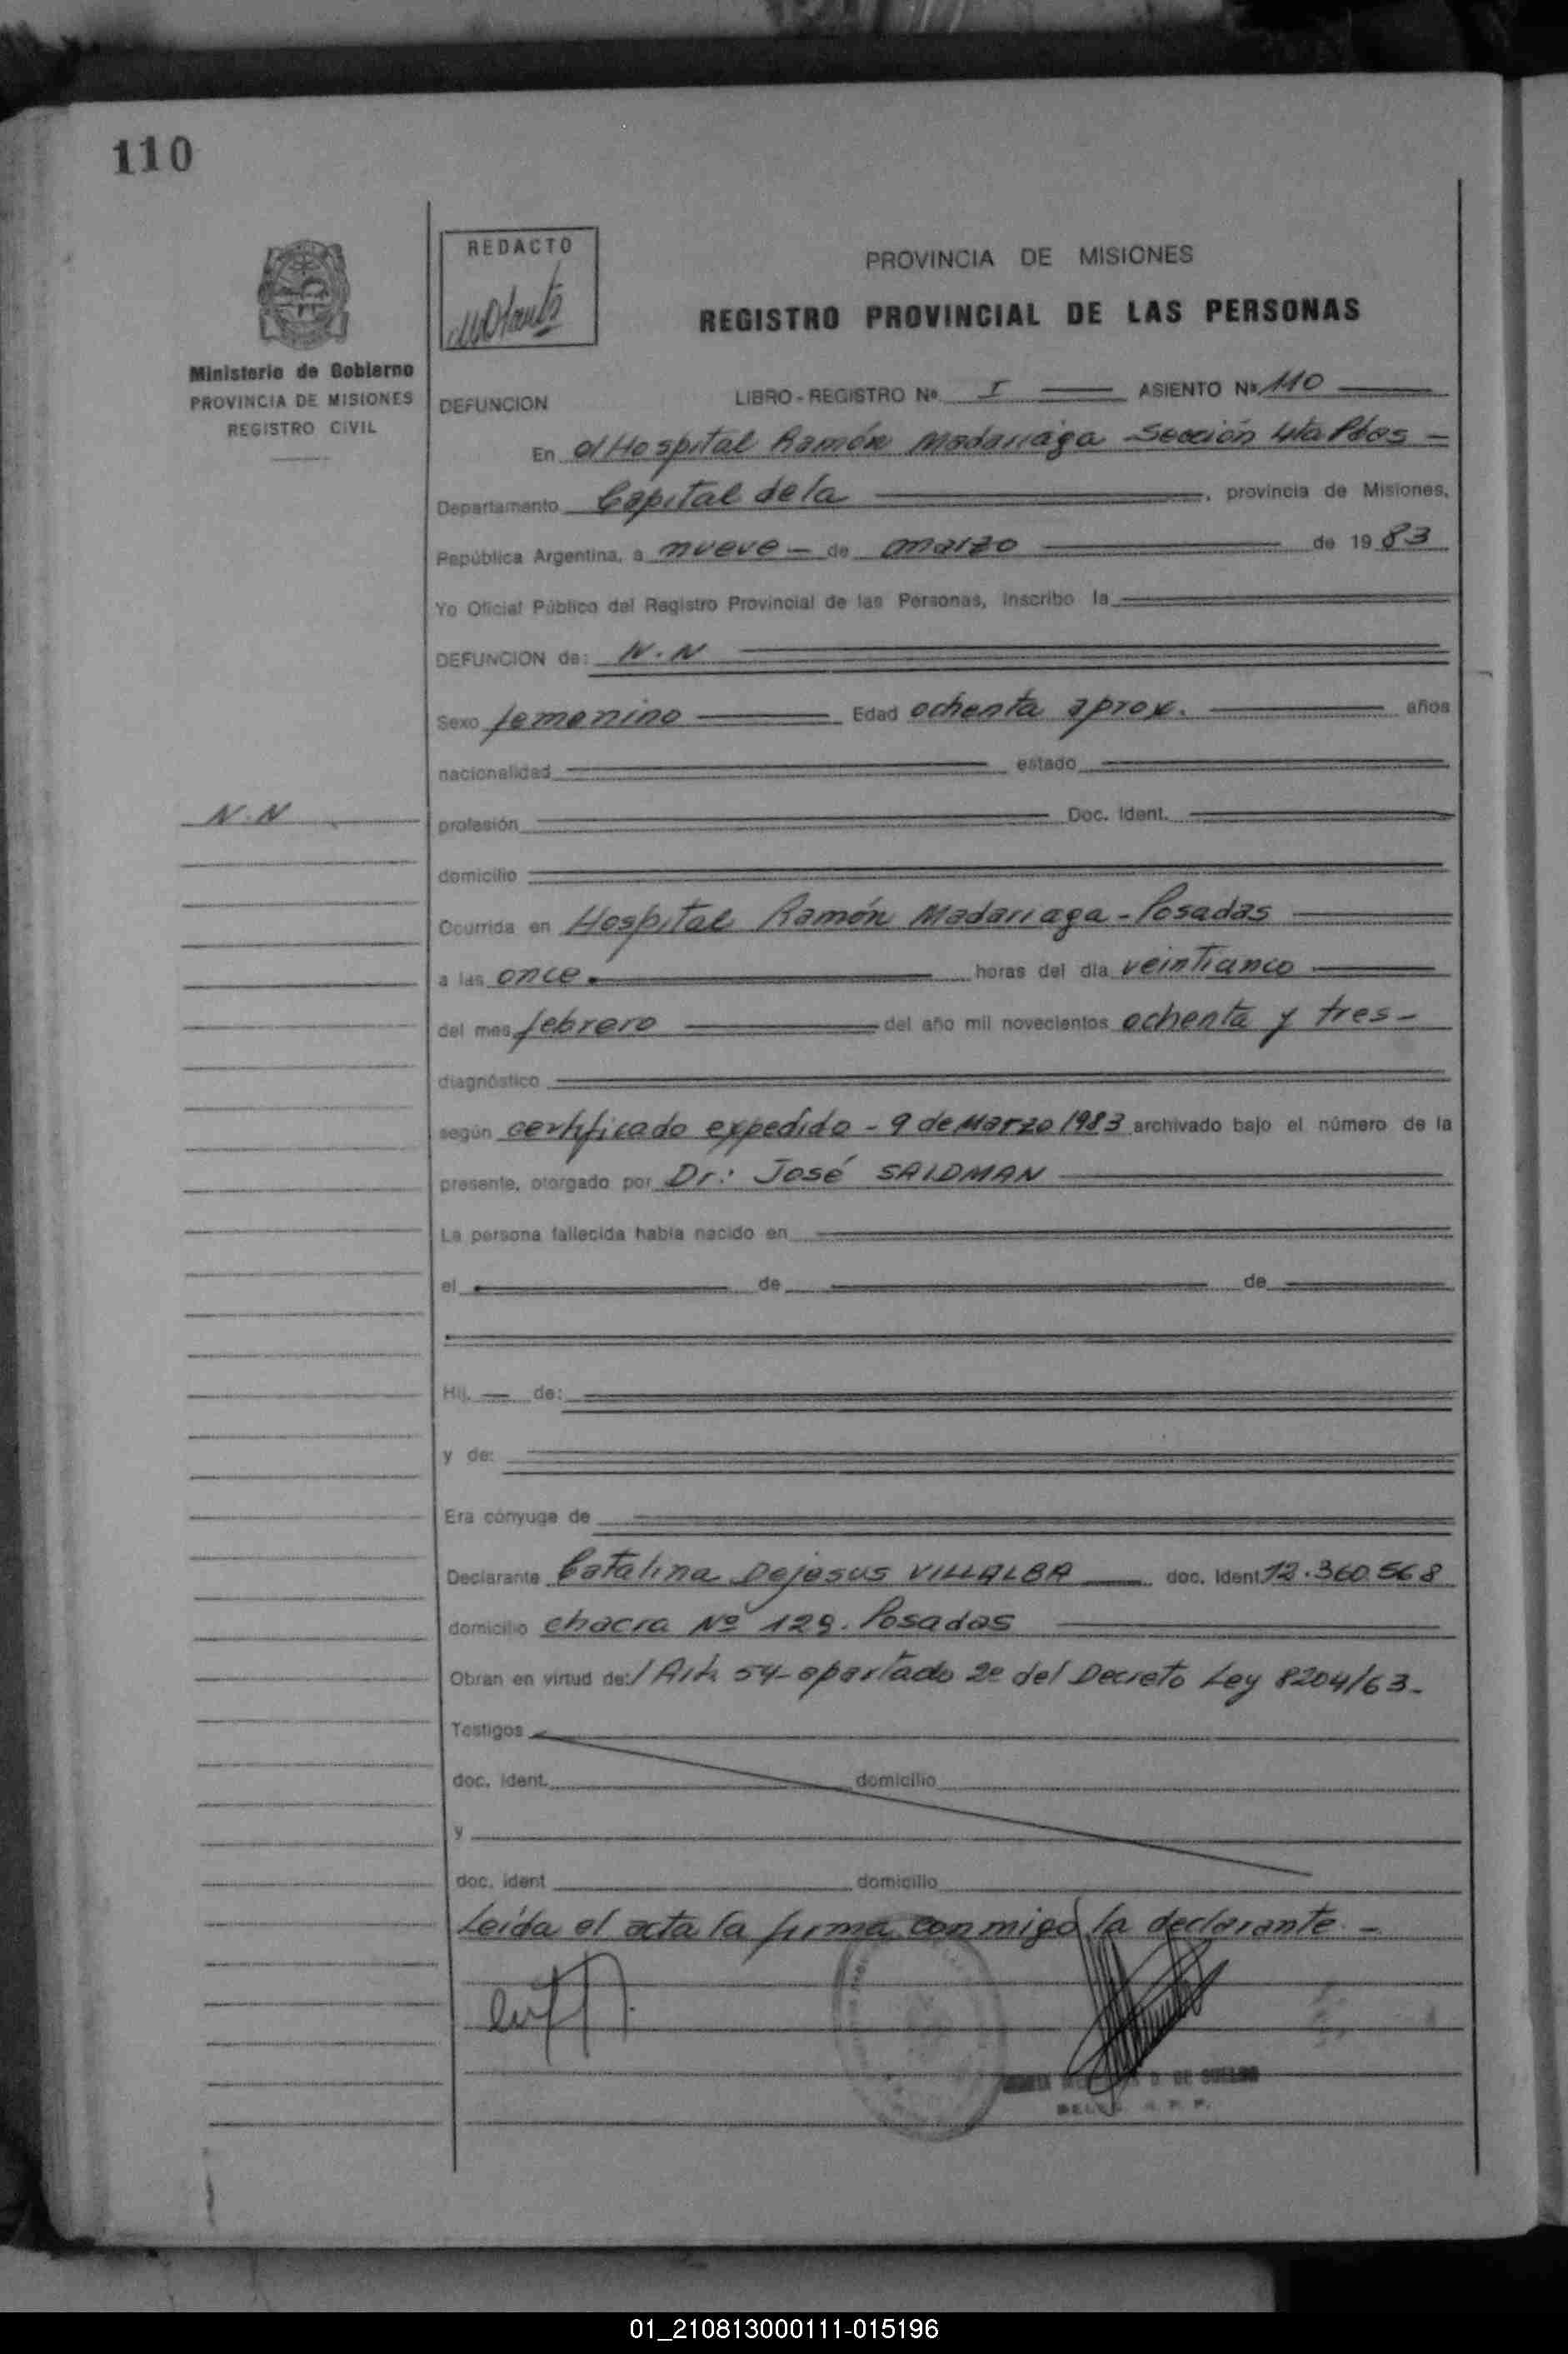 110
REDACTO
PROVINCIA DE MISIONES
REGISTRO PROVINCIAL DE LAS PERSONAS
Ministerio de Gobierno
PROVINCIA DE MISIONES
REGISTRO CIVIL
DEFUNCION LIBRO - REGISTRO Nº I ASIENTO Nº 110
En el Hospital Ramón Madariaga - Sección 4ta Pdas -
Departamento Capital de la , provincia de Misiones,
República Argentina, a nueve - de marzo de 19 83
Yo Oficial Público del Registro Provincial de las Personas, inscribo la
DEFUNCION de: N.N
Sexo femenino Edad ochenta aprox. años
nacionalidad estado
N.N
profesión Doc. Ident.
domicilio
Ocurrida en Hospital Ramón Madariaga - Posadas
a las once. horas del día veinticinco
del mes febrero del año mil novecientos ochenta y tres -
diagnóstico
según certificado expedido - 9 de Marzo 1983 archivado bajo el número de la
presente, otorgado por Dr: José SAIDMAN
La persona fallecida había nacido en
el de de
Hij. de:
y de:
Era cónyuge de
Declarante Catalina Dejesus VILLALBA doc. Ident 12.360.568
domicilio chacra Nº 129. Posadas
Obran en virtud de:/ Art. 54 - apartado 2º del Decreto Ley 8204/63 -
Testigos
doc. ident. domicilio
y
doc. ident domicilio
Leída el acta la firma conmigo la declarante. -
D. DE
01_210813000111-015196